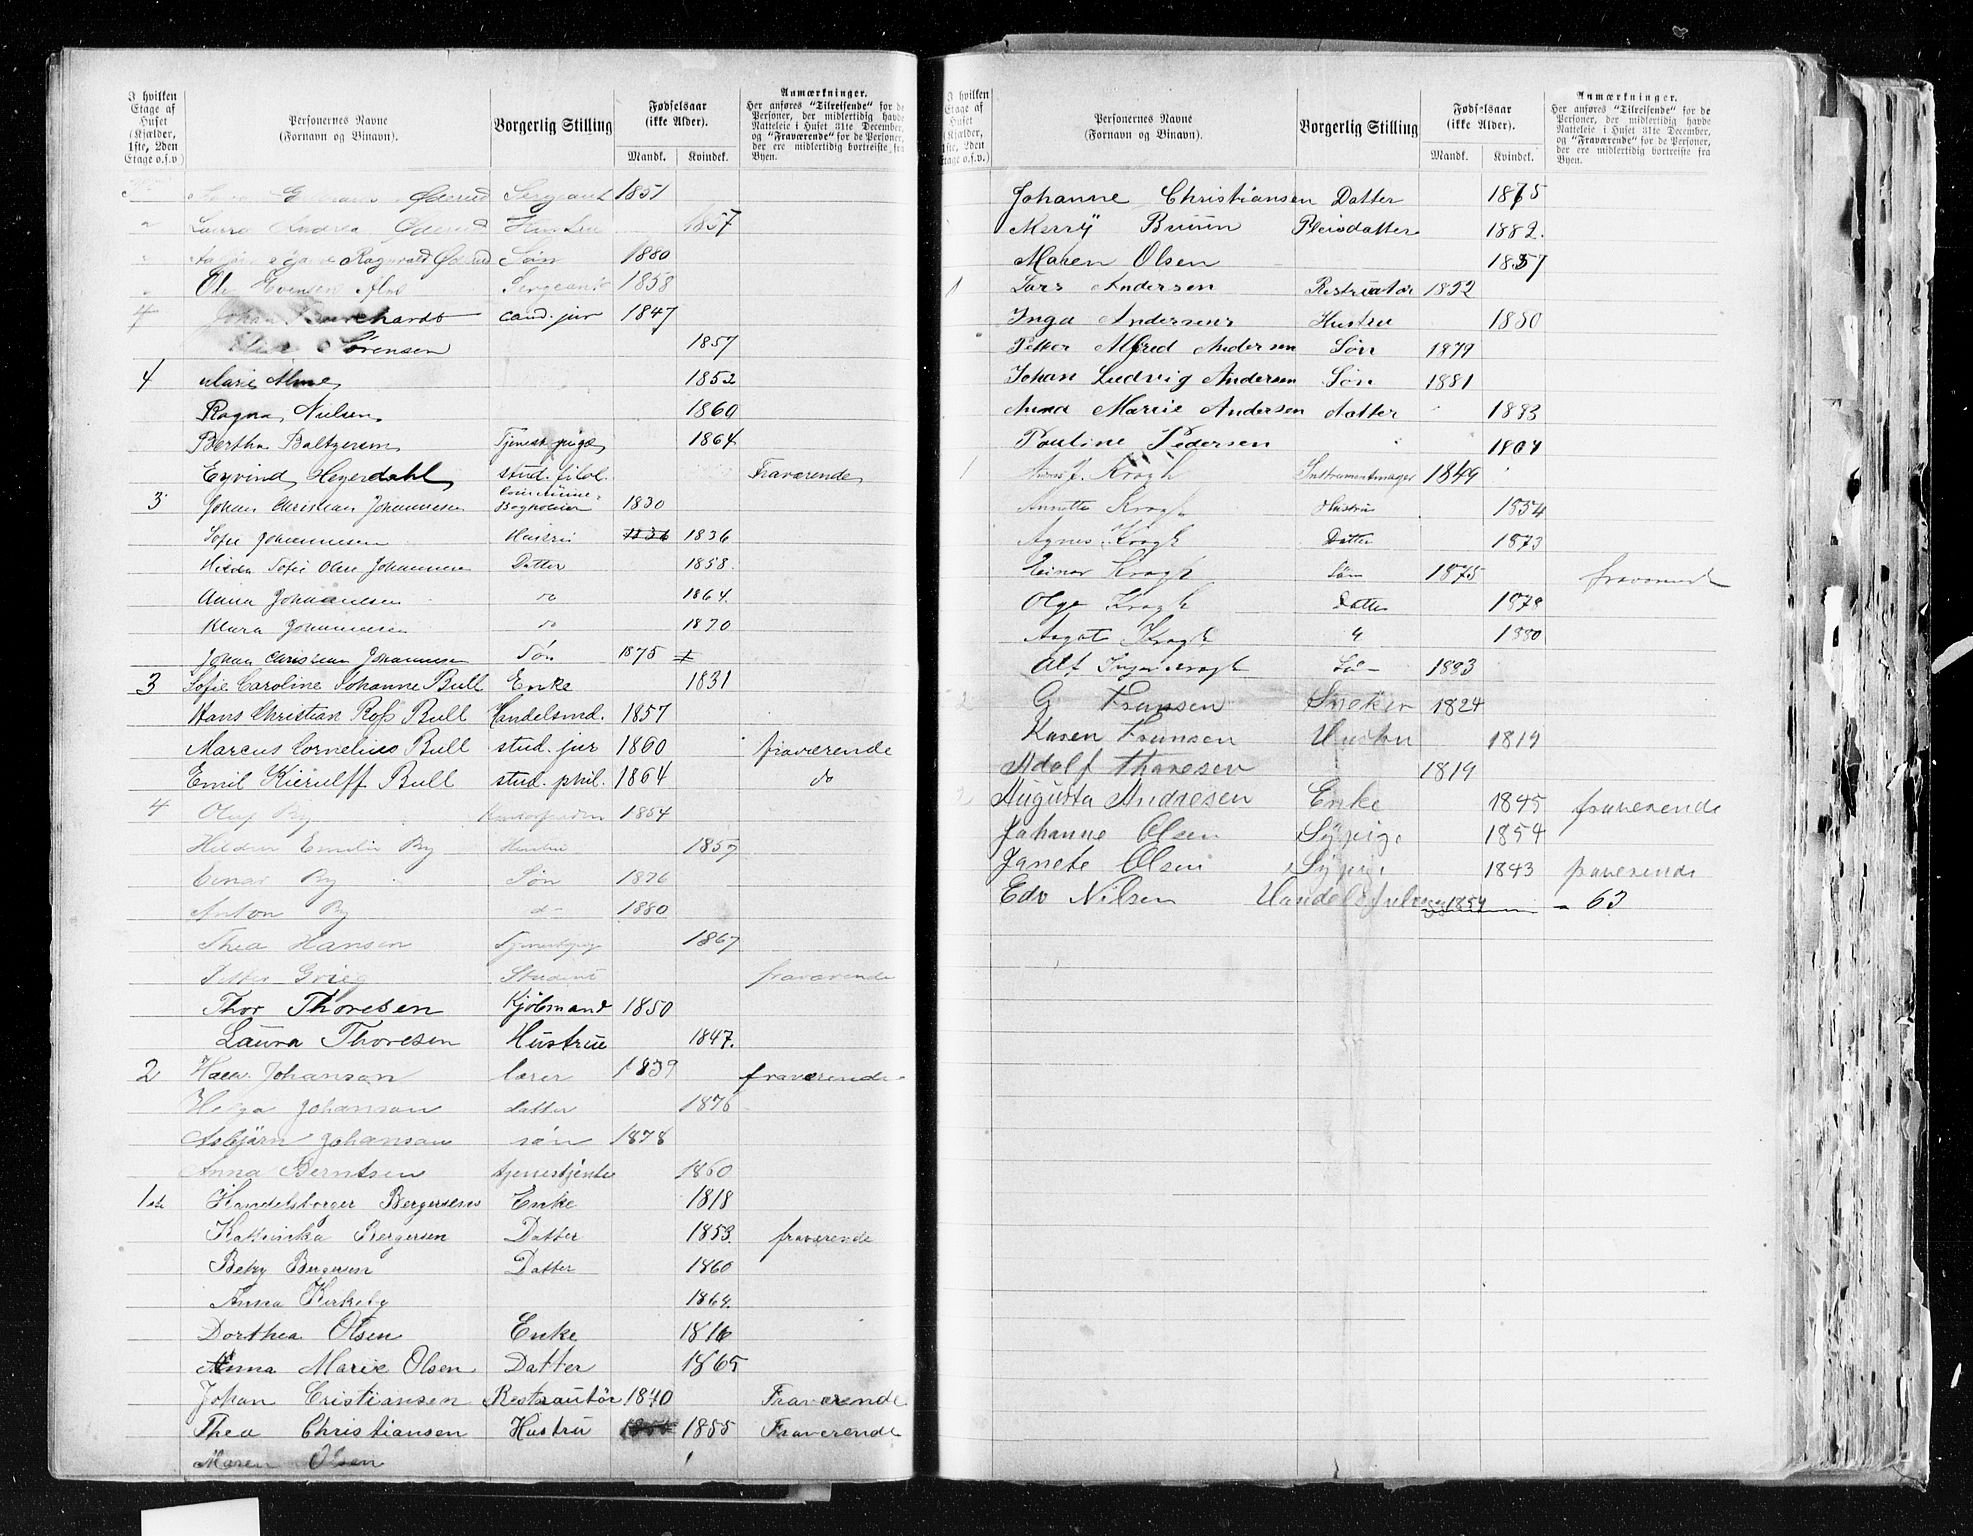 I hvilken Etage af Huset (Kjælder, 1ste, 2den Etage o.s.v.)
Personernes Navne (Fornavn og Binavn).
Borgerlig Stilling
Fødselsaar (ikke Alder).
Mandk. Kvindek.
Anmærkninger.
Her anføres "Tilreisende" for de Personer, der midlertidig havde Natteleie i Huset 31te December, og "Fraværende" for de Personer, der ere midlertidig bortreiste fra Byen.
Øderud Sergeant 1851
Laura Andrea Øderud Hustru 1857
Ragnvald Øderud Søn 1880
Ole Evensen Sergeant 1858
4 Johan cand. jur 1847
Sørensen 1857
4 Marie 1852
Ragna Nielsen 1860
Bertha Baltzersen Tjenestepige 1864
Eyvind Heyerdahl stud. filol. Fraværende
3 Johan Christian Johannesen Bogholder 1830
Sofie Johannesen Hustru 1836
Hilda Sofie Johannesen Datter 1858.
Anna Johannesen do 1864.
Klara Johannesen do 1870
Johan Christian Johannesen Søn 1875
3 Sofie Caroline Johanne Bull Enke 1831
Hans Christian Ross Bull Handelsmd. 1857
Marcus Cornelius Bull stud. jur 1860 fraværende
Emil Kierulff Bull stud. phil. 1864 do
4 Olaf By 1854
Emilie By Hustru 1857
Einar By Søn 1876
Anton By do 1880
Thea Hansen Tjenestepige 1867
Petter Grieg Student fraværende
Thor Thoresen Kjøbmand 1850
Laura Thoresen Hustrue 1847.
2 Johanson lærer 1839 fraværende
Helga Johanson datter 1876
Asbjörn Johanson søn 1878
Anna Berntsen tjenestjente 1860
1ste Bergersens Enke 1818
Kathinka Bergersen Datter 1853. fraværende
Betzy Bergersen Datter 1860
Anna Kirkeby 1864.
Dorthea Olsen Enke 1816
Anna Marie Olsen Datter 1865
Johan Cristiansen Restrautør 1840 Fraværende
Thea Christiansen Hustru 1855 Fraværende
Maren Olsen
I hvilken Etage af Huset (Kjælder, 1ste, 2den Etage o.s.v.)
Personernes Navne (Fornavn og Binavn).
Borgerlig Stilling
Fødselsaar (ikke Alder).
Mandk. Kvindek.
Anmærkninger.
Her anføres "Tilreisende" for de Personer, der midlertidig havde Natteleie i Huset 31te December, og "Fraværende" for de Personer, der ere midlertidig bortreiste fra Byen.
Johanne Christiansen Datter 1875
Merrÿ Bruun Pleisdatter 1882.
Maren Olsen 1857
1 Lars Andersen Restruatør 1852
Inga Andersens Hustru 1850
Petter Alfred Andersen Søn 1879
Johan Ludvig Andersen Søn 1881
Anna Marie Andersen datter 1883
Pauline Pedersen
1 J. Kragh Instrumentmager 1849
Annette Kragh Hustru 1854
Agnes Kragh Datter 1873
Einar Kragh Søn 1875 fraværend
Olga Kragh Datter 1878
Aagot Kragh " 1880
Alf Kragh Søn 1883
2 G Fransen Sneker 1824
Karen Fransen Hustru 1819
Adolf Thoresen 1819
2 Augusta Andresen Enke 1845 fraverende
Johanne Olsen Sÿpige 1854
Janete Olsen Sÿpige 1843 fraverende
Edv Nilsen 1854 - 63